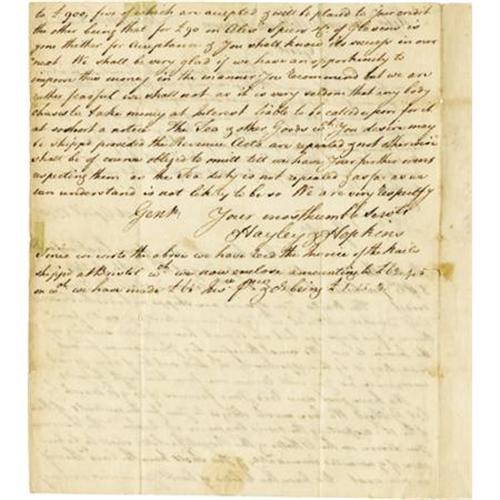 to £900, five of which are accepted & will be placed to Your credit
the other being that for £90 on Alexr. Spiers & Co. of Glascow is
gone thither for Acceptance & You shall know its success in our
next. We shall be very glad if we have an opportunity to
improve this money in the manner You recommend but we are
rather fearful we shall not as it is very seldom that any body
chuses to take money at Interest liable to be called upon for it
at so short a notice. The Tea & other Goods wch. You desire may
be shipp'd provided the Revenue Acts are repealed & not otherwise
shall be of course obliged to omitt till we have Your further orders
respecting them as the Tea duty is not repealed & as far as we
can understand is not likely to be so We are very respectfy
Gentn. Your most humble Servts
Hayley & Hopkins
Since we wrote the above we have recd the Invoice of the Nails
shipp'd at Bristol wch. we now enclose amounting to
on wch. we have made being £